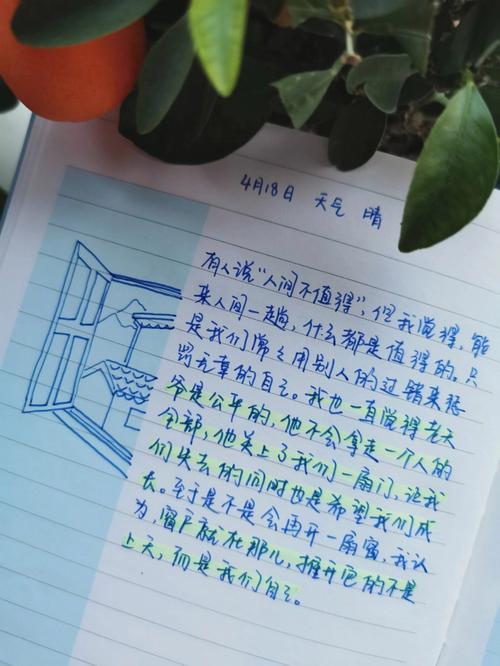 4月18日 天气 晴
有人说“人间不值得”，但我觉得，能
来人间一趟，什么都是值得的。只
是我们常常用别人的过错来惩
罚无辜的自己。我也一直觉得老天
爷是公平的，他不会拿走一个人的
全部，他关上了我们一扇门，让我
们失去的同时也是希望我们成
长。至于是不是会再开一扇窗，我认
为，窗户就在那儿，推开它的不是
上天，而是我们自己。